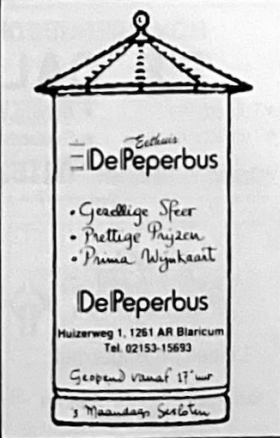 Eethuis
De Peperbus
• Gezellige Sfeer
• Prettige Prijzen
• Prima Wijnkaart
De Peperbus
Huizerweg 1, 1261 AR Blaricum
Tel. 02153-15693
Geopend vanaf 17 uur
's Maandags Gesloten